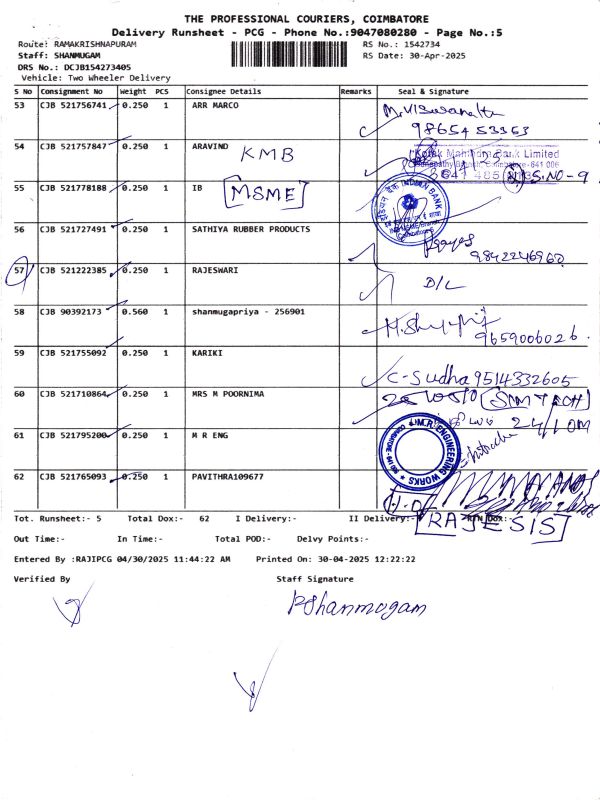 THE PROFESSIONAL COURIERS, COIMBATORE
Delivery Runsheet - PCG - Phone No.:9047080280 - Page No.:5
Route: RAMAKRISHNAPURAM RS No.: 1542734
Staff: SHANMUGAM RS Date: 30-Apr-2025
DRS No.: DCJB154273405
Vehicle: Two Wheeler Delivery
S No Consignment No Weight PCS Consignee Details Remarks Seal & Signature
53 CJB 521756741 0.250 1 ARR MARCO
9865453363
54 CJB 521757847 0.250 1 ARAVIND KMB
Kotak Mahindra Bank Limited
S.NO-9
55 CJB 521778188 0.250 1 IB MSME
INDIAN BANK
56 CJB 521727491 0.250 1 SATHIYA RUBBER PRODUCTS
9842246960
57 CJB 521222385 0.250 1 RAJESWARI D/L
58 CJB 90392173 0.560 1 shanmugapriya - 256901
9659006026
59 CJB 521755092 0.250 1 KARIKI
C-Sudha 9514332605
60 CJB 521710864 0.250 1 MRS M POORNIMA
61 CJB 521795200 0.250 1 M R ENG
M.R. ENGINEERING WORKS
62 CJB 521765093 0.250 1 PAVITHRA109677
Tot. Runsheet:- 5 Total Dox:- 62 I Delivery:- II Delivery:- RTN Dox:-
RAJESIS
Out Time:- In Time:- Total POD:- Delvy Points:-
Entered By :RAJIPCG 04/30/2025 11:44:22 AM Printed On: 30-04-2025 12:22:22
Verified By Staff Signature
P.Shanmugam